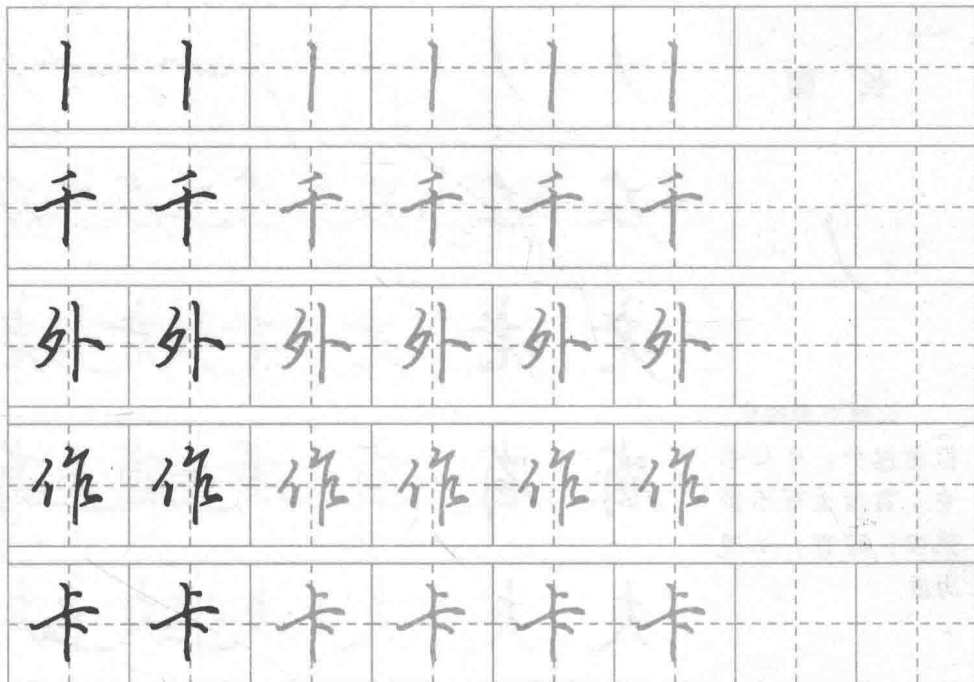 丨丨丨丨丨丨
千千千千千千
外外外外外外
作作作作作作
卡卡卡卡卡卡